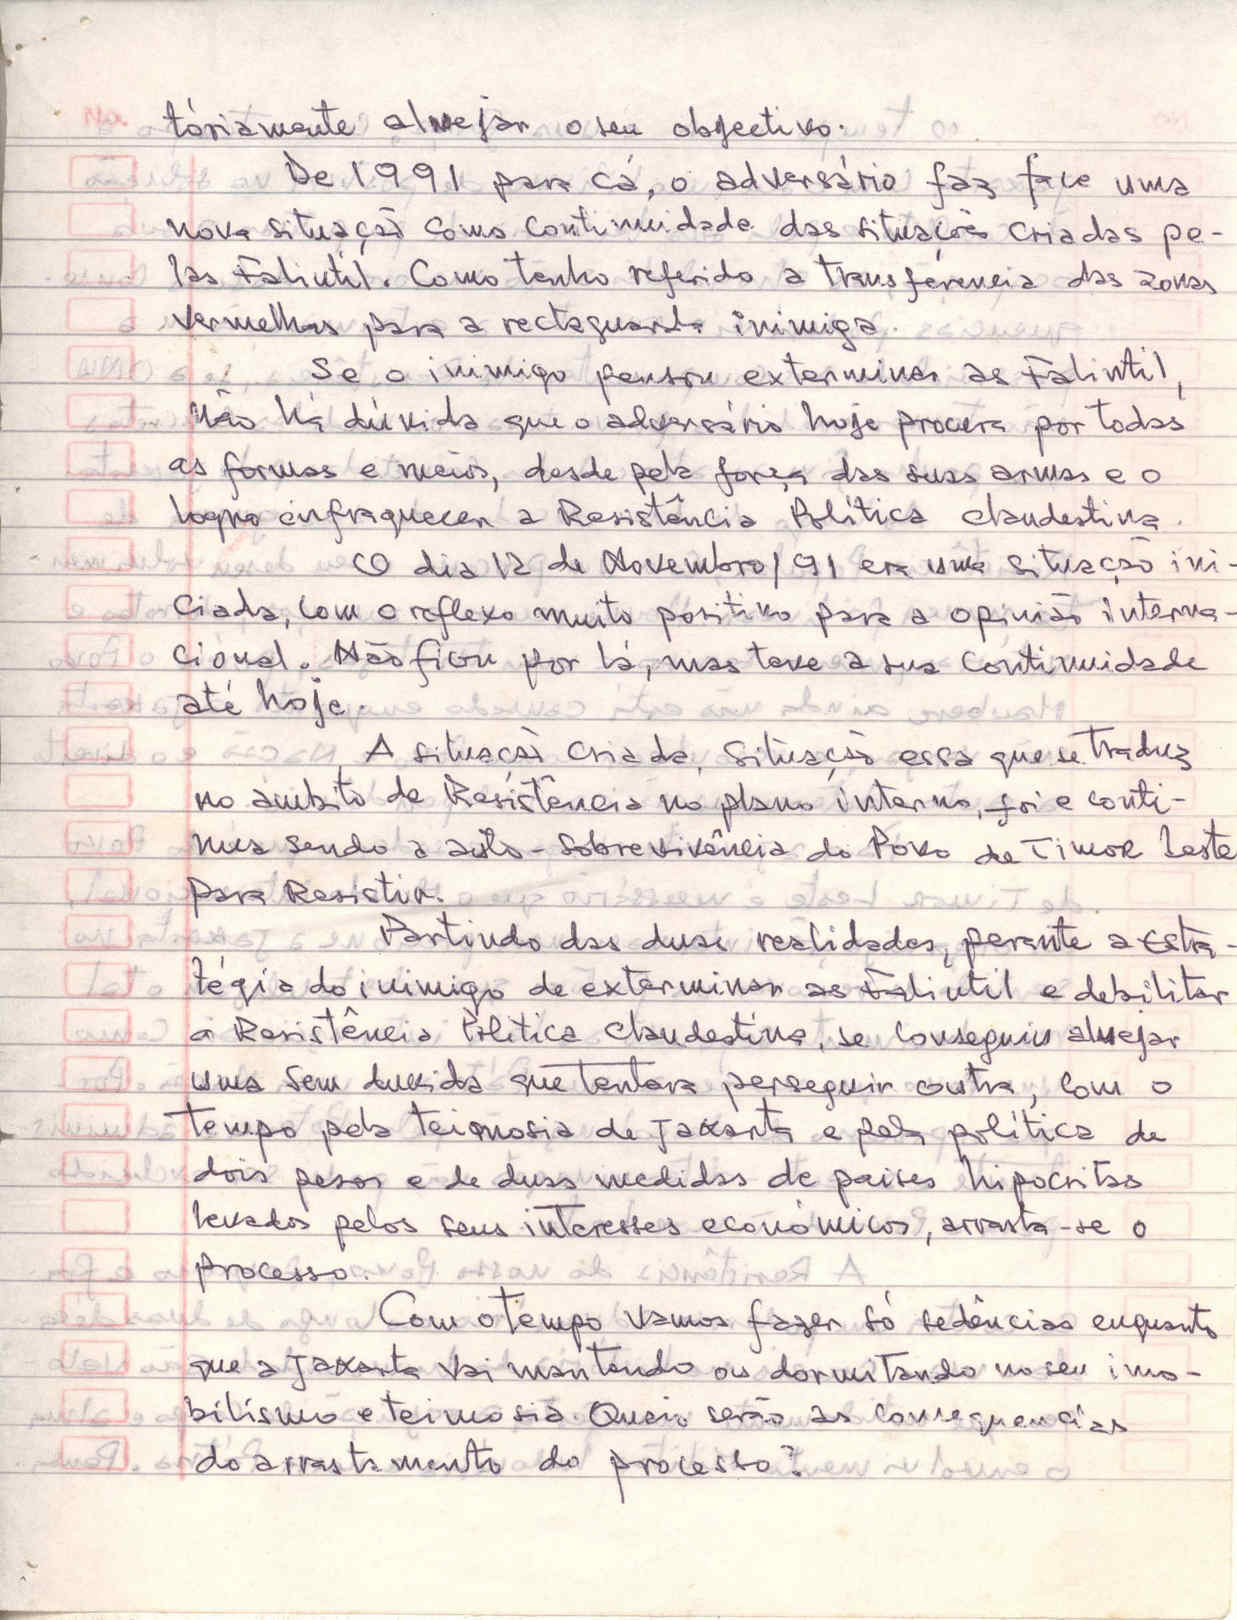 tóriamente almejar o seu objectivo.
De 1991 para cá, o adversário faz face uma
nova situação como continuidade das situações criadas pe-
las Falintil. Como tenho referido a transferencia das zonas
vermelhas para a rectaguarda inimiga.
Se o inimigo pensou exterminar as Falintil,
não há dúvida que o adversário hoje procura por todas
as formas e meios, desde pela força das suas armas e o
logro enfraquecer a Resistência Política Clandestina.
O dia 12 de Novembro/91 era uma situação ini-
ciada, com o reflexo muito positivo para a opinião interna-
cional. Não ficou por lá, mas teve a sua continuidade
até hoje.
A situação criada, situação essa que se traduz
no ambito de Resistência no plano interno, foi e conti-
nua sendo a auto-sobrevivência do Povo de Timor Leste
para Resistir.
Partindo das duas realidades, perante a estra-
tégia do inimigo de exterminar as Falintil e debilitar
a Resistência Política Clandestina, se conseguiu almejar
uma sem duvida que tentara perseguir outra, com o
tempo pela teimosia de Jakarta e pela política de
dois pesos e de duas medidas de paises hipocritas
levados pelos seus interesses económicos, arrasta-se o
processo.
Com o tempo vamos fazer só sedências enquanto
que a Jakarta vai mantendo ou dormitando no seu imo-
bilísmo e teimosia. Quais serão as consequencias
do arrastamento do processo?